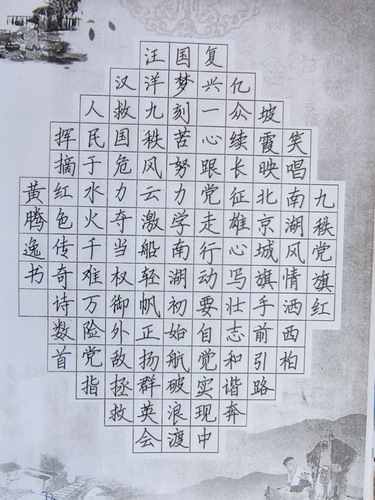 九秩党旗红
笑唱南湖风情洒西柏
坡霞映北京城旗手前引路
亿众续长征雄心写壮志和谐奔
复兴一心跟党走行动要自觉实现中
国梦刻苦努力学南湖初始航破浪渡
汪洋九秩风云激船轻帆正扬群英会
汉救国危力夺当权御外敌拯救
人民于水火千难万险党指
挥摘红色传奇诗数首
黄腾逸书